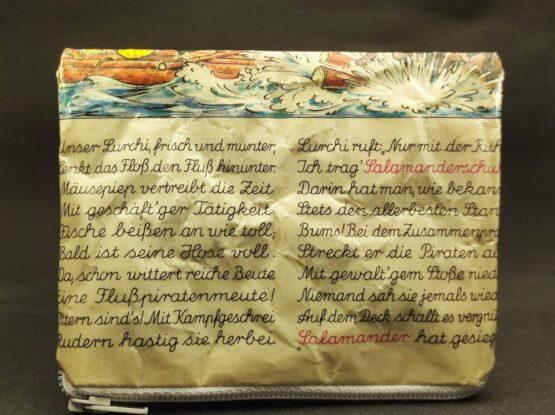 Unser Lurchi, frisch und munter,
lenkt das Floß den Fluß hinunter.
Mäusepiep vertreibt die Zeit
Mit geschäft'ger Tätigkeit.
Fische beißen an wie toll,
Bald ist seine Hose voll.
Da, schon wittert reiche Beute
Eine Flußpiratenmeute!
Ottern sind's! Mit Kampfgeschrei
Rudern hastig sie herbei.
Lurchi ruft: „Nur mit der
Ich trag' Salamanderschu
Darin hat man, wie bekan
Stets den allerbesten Stan
Bums! Bei dem Zusammenpra
Streckt er die Piraten al
Mit gewalt'gem Stoße nied
Niemand sah sie jemals wied
Auf dem Deck schallt es vergnü
„Salamander hat gesieg